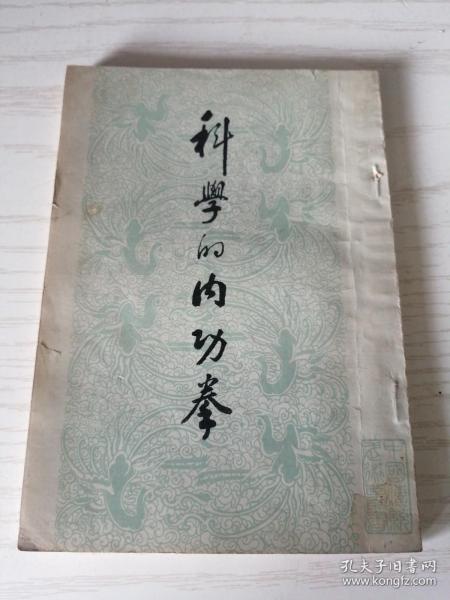 科學的内功拳
孔夫子旧书网
www.kongfz.com